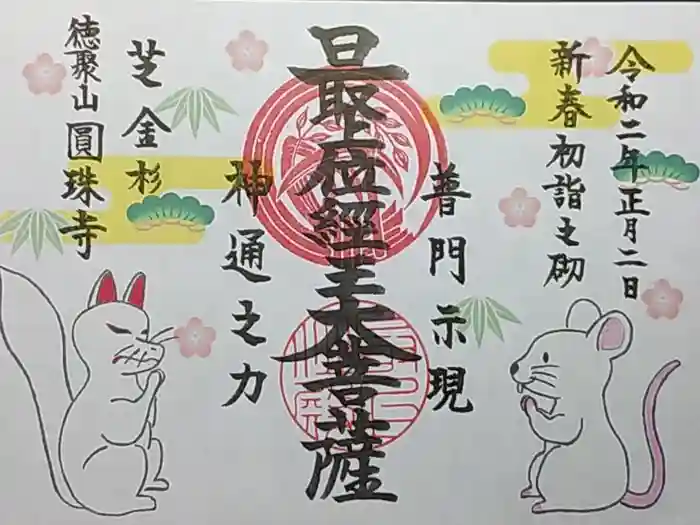 令和二年正月二日
新春初詣之砌
普門示現
最上位經王大菩薩
神通之力
芝金杉
徳聚山圓珠寺